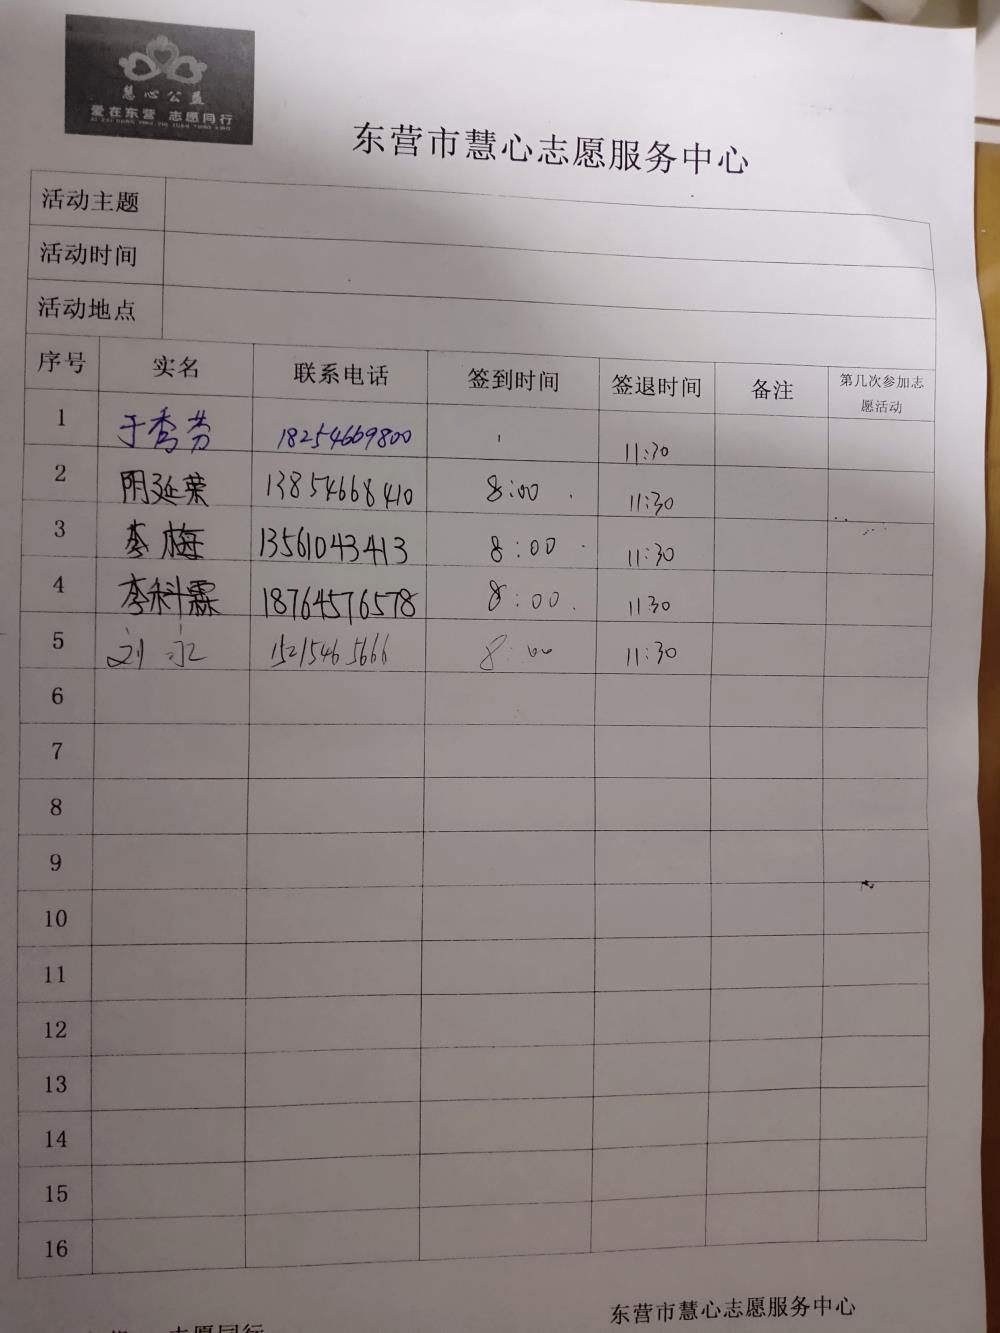 慧心公益
爱在东营 志愿同行
AI ZAI DONG YING ZHI YUAN TONG XING
东营市慧心志愿服务中心
活动主题
活动时间
活动地点
序号 实名 联系电话 签到时间 签退时间 备注 第几次参加志愿活动
1 于秀芳 18254669800 11:30
2 阴延荣 13854668410 8:00 11:30
3 李梅 13561043413 8:00 11:30
4 李科霖 18764576578 8:00 1130
5 刘永 15215465666 8:00 11:30
6
7
8
9
10
11
12
13
14
15
16
东营市慧心志愿服务中心
志愿同行